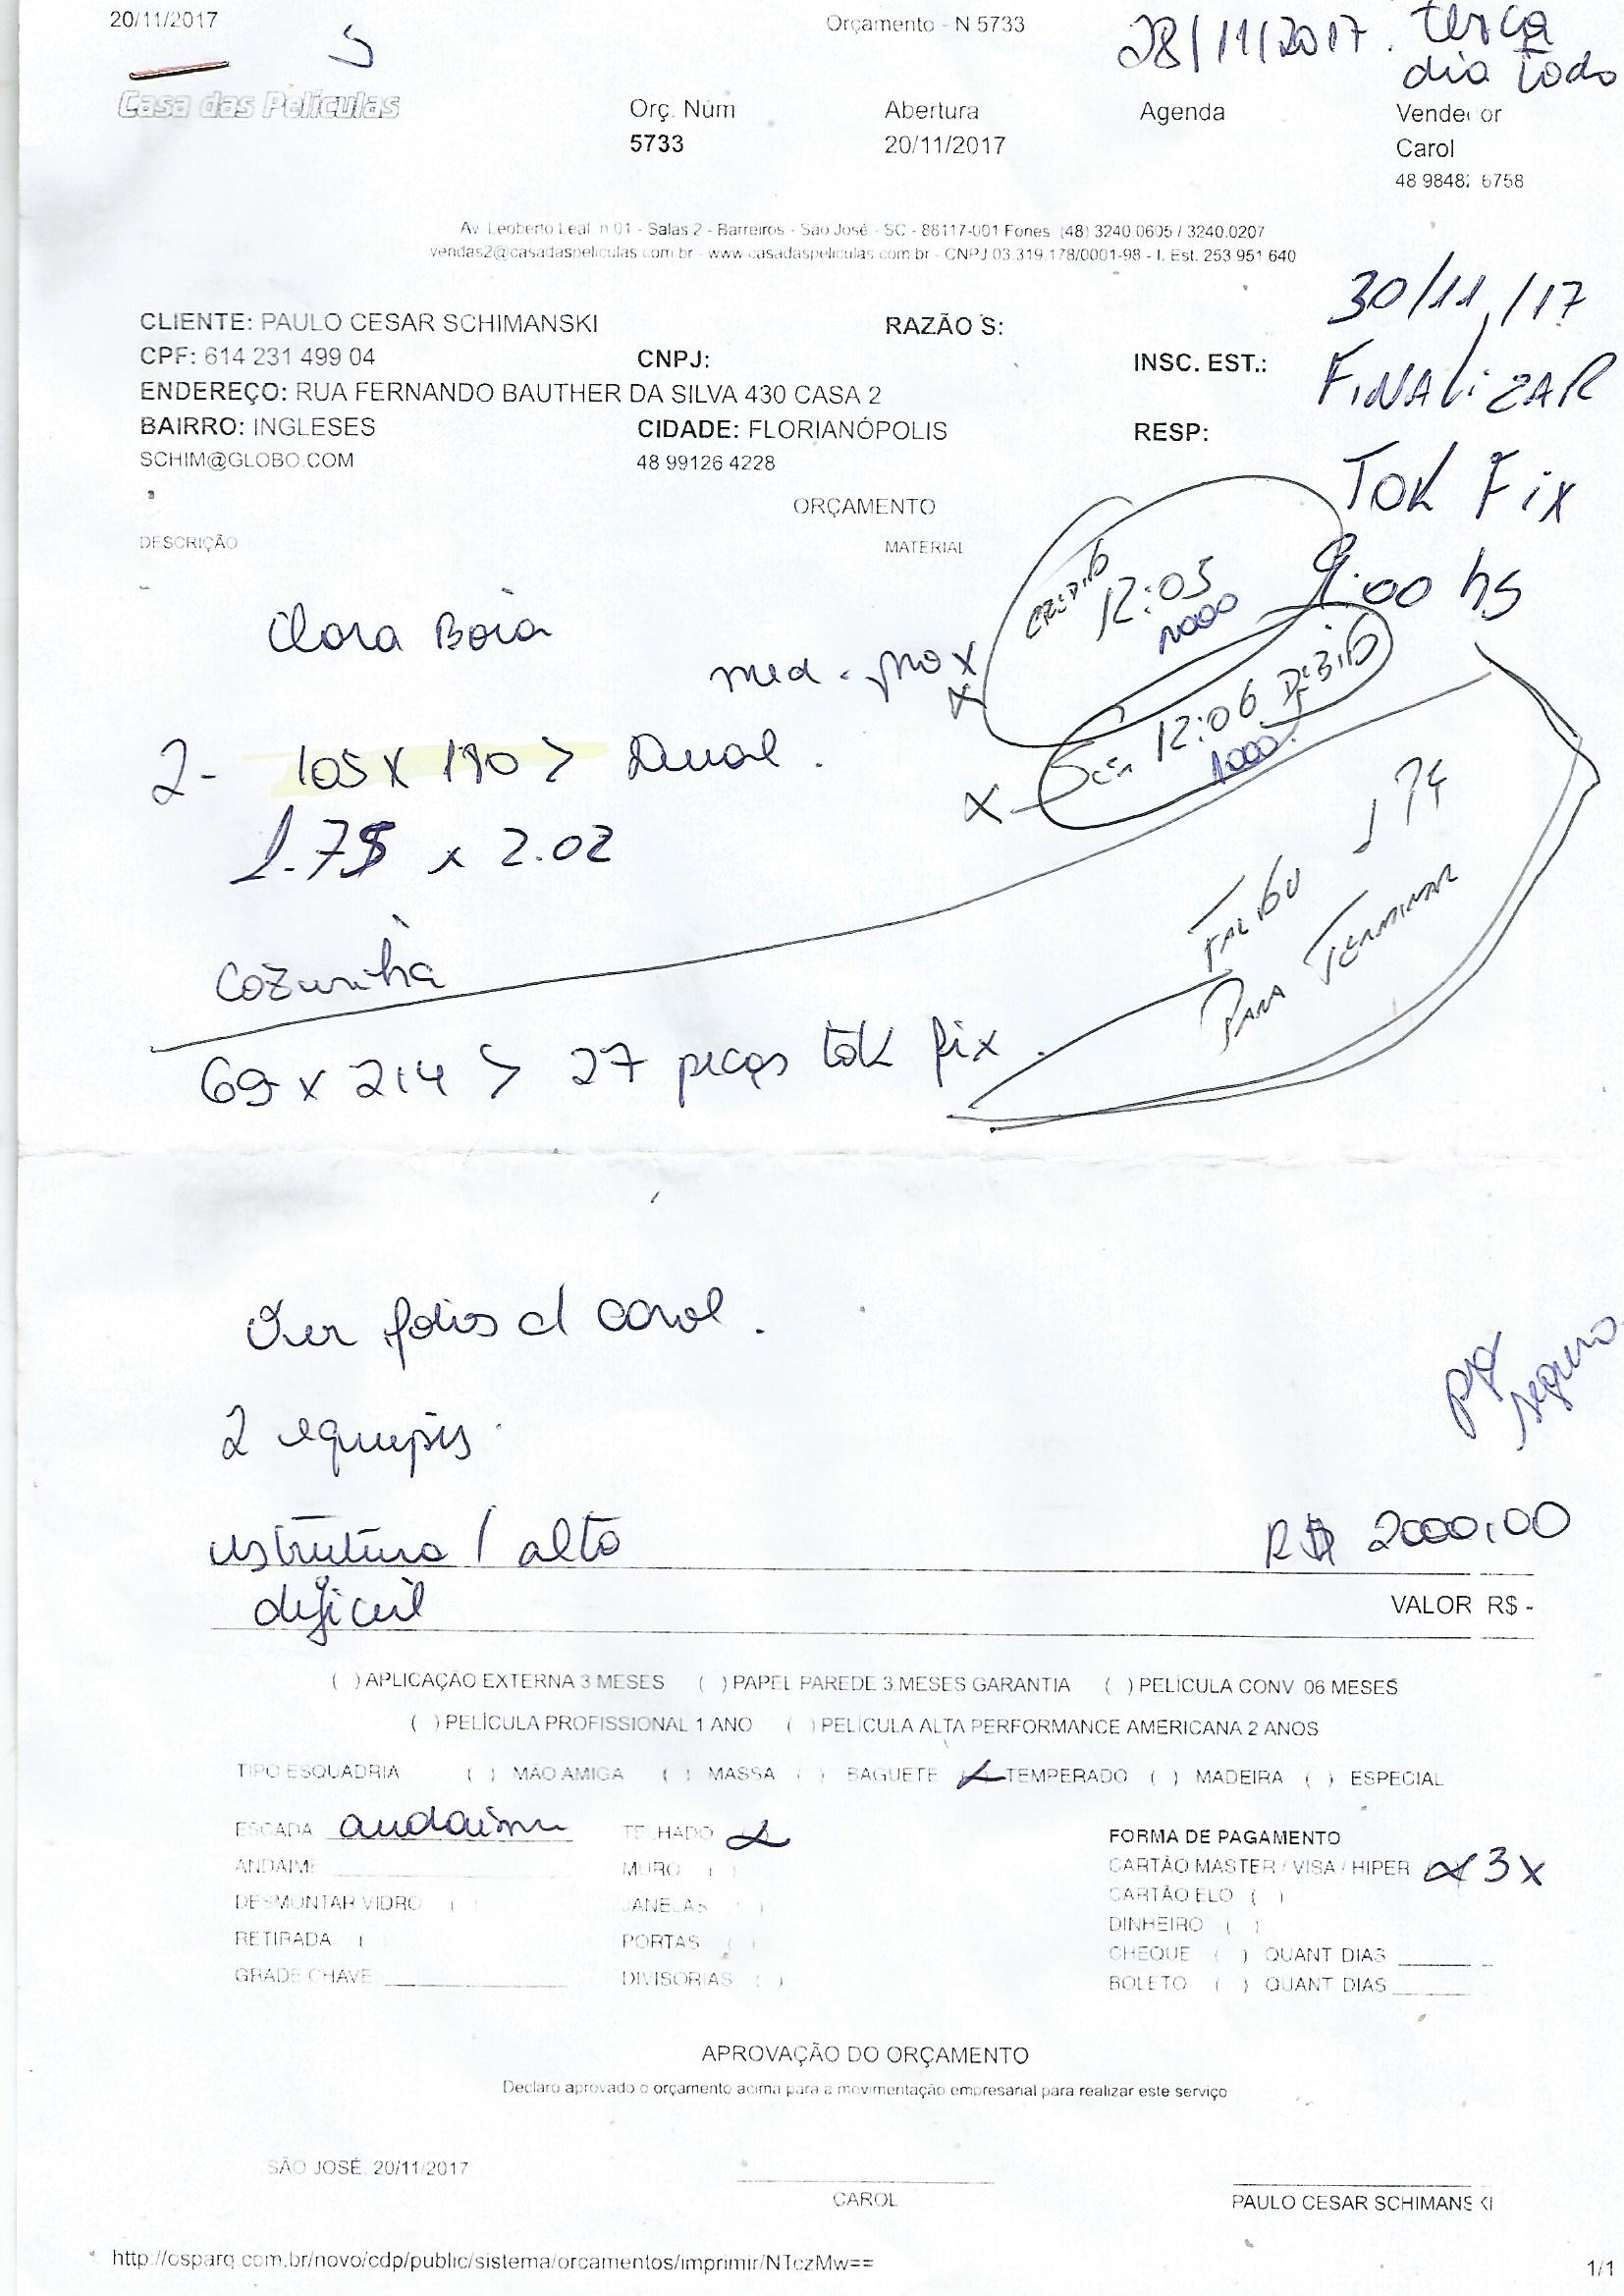 20/11/2017
Orçamento - N 5733
28/11/2017. terça
dia todo
Casa das Películas
Orç. Núm
5733
Abertura
20/11/2017
Agenda
Vendedor
Carol
48 9848 6758
Av. Leoberto Leal n 01 - Salas 2 - Barreiros - São José - SC - 88117-001 Fones (48) 3240.0605 / 3240.0207
vendas2@casadaspeliculas.com.br - www.casadaspeliculas.com.br - CNPJ 03.319.178/0001-98 - I. Est. 253 951 640
30/11/17
FINALIZAR
TOK FIX
9:00 hs
CLIENTE: PAULO CESAR SCHIMANSKI
RAZÃO S:
CPF: 614 231 499 04
CNPJ:
INSC. EST.:
ENDEREÇO: RUA FERNANDO BAUTHER DA SILVA 430 CASA 2
BAIRRO: INGLESES
CIDADE: FLORIANÓPOLIS
RESP:
SCHIM@GLOBO.COM
48 99126 4228
ORÇAMENTO
DESCRIÇÃO
MATERIAL
CREDITO
12:05
1000
Clara Boia
med. prox
X
12:06 DEBITO
1000
X
2- 105 X 190 > Dual.
1.75 x 2.02
FALTOU
PARA TERMINAR
Cozinha
69 x 214 > 27 peças tok fix.
Ver fotos c/ carol.
2 equipes
estrutura / alto
difícil
seguro
R$ 2000,00
VALOR R$ -
( ) APLICAÇÃO EXTERNA 3 MESES ( ) PAPEL PAREDE 3 MESES GARANTIA ( ) PELÍCULA CONV. 06 MESES
( ) PELÍCULA PROFISSIONAL 1 ANO ( ) PELÍCULA ALTA PERFORMANCE AMERICANA 2 ANOS
TIPO ESQUADRIA ( ) MÃO AMIGA ( ) MASSA ( ) BAGUETE (X) TEMPERADO ( ) MADEIRA ( ) ESPECIAL
ESCADA andaime
TELHADO X
FORMA DE PAGAMENTO
ANDAIME
MURO ( )
CARTÃO MASTER / VISA / HIPER X 3x
DESMONTAR VIDRO ( )
JANELAS ( )
CARTÃO ELO ( )
RETIRADA ( )
PORTAS ( )
DINHEIRO ( )
GRADE CHAVE
DIVISORIAS ( )
CHEQUE ( ) QUANT DIAS
BOLETO ( ) QUANT DIAS
APROVAÇÃO DO ORÇAMENTO
Declaro aprovado o orçamento acima para a movimentação empresarial para realizar este serviço
SÃO JOSÉ, 20/11/2017
CAROL
PAULO CESAR SCHIMANSKI
http://osparq.com.br/novo/cdp/public/sistema/orcamentos/imprimir/NTczMw==
1/1